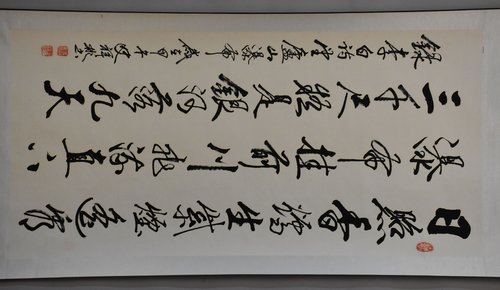 日照香炉生紫烟遥看
瀑布挂前川飞流直下
三千尺疑是銀河落九天
録李白詩望廬山瀑布